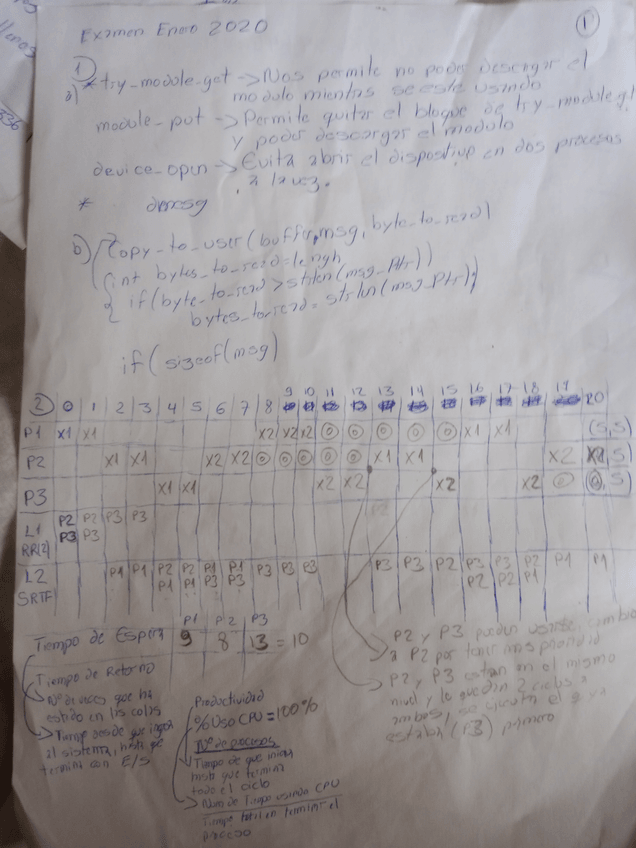 Examen Enero 2020
1
1
a) * try_module_get -> Nos permite no poder descargar el
modulo mientras se este usando
module_put -> Permite quitar el bloque de try_module_get
y poder descargar el modulo
device_open -> Evita abrir el dispositivo en dos procesos
a la vez.
* dmesg
b) Copy_to_user(buffer, msg, byte_to_read)
int bytes_to_read = lengh
if (byte_to_read > strlen(msg_Ptr))
bytes_to_read = strlen(msg_Ptr);
if (sizeof(msg)
2 0 1 2 3 4 5 6 7 8 9 10 11 12 13 14 15 16 17 18 19 20
P1 x1 x1 x2 x2 x2 0 0 0 0 0 x1 x1 (5,5)
P2 x1 x1 x2 x2 0 0 0 0 0 x1 x1 x2
P3 x1 x1 x2 x2 x2 x2 0
L1 P2 P2 P3 P3
RR(2) P3 P3
L2 P1 P1 P2 P2 P1 P1 P3 P3 P3 P3 P3 P2 P3 P3 P2 P1 P1
SRTF P1 P1 P3 P3 P2 P2 P1
P1 P2 P3
Tiempo de Espera 9 8 13 = 10
P2 y P3 pueden usarse, cambio
a P2 por tener mas prioridad
P2 y P3 estan en el mismo
nivel y lo quedan 2 ciclos a
ambos, se ejecuta el q ya
estaba (P3) primero
Tiempo de Retorno
Nº de veces que ha
estado en las colas
Tiempo desde que ingresa
al sistema, hasta que
termina con E/S
Productividad
%Uso CPU = 100%
Nº de procesos
Tiempo de que inicia
hasta que termina
todo el ciclo
Num de Tiempo usando CPU
Tiempo total en terminar el
proceso